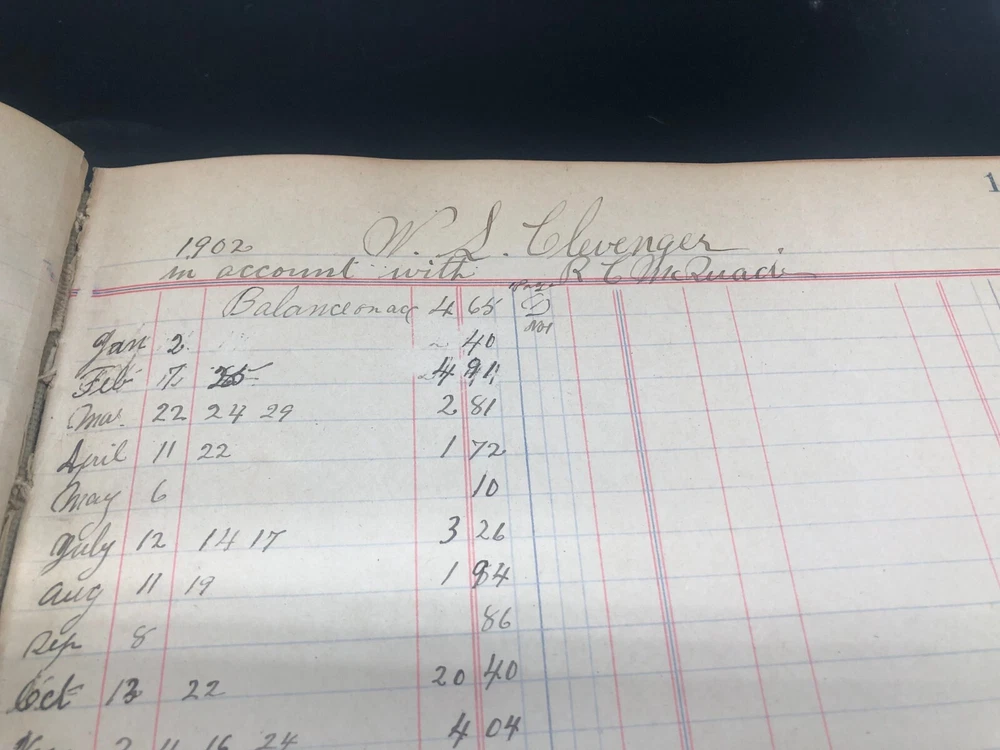 1
W. L. Clevenger
1902
in account with R C McQuade
Balance on ac 4 65
Jan 2 40
Feb 17 4 91
Mar. 22 24 29 2 81
April 11 22 1 72
May 6 10
July 12 14 17 3 26
Aug 11 19 1 94
Sep 8 86
Oct 13 22 20 40
11 16 24 4 04